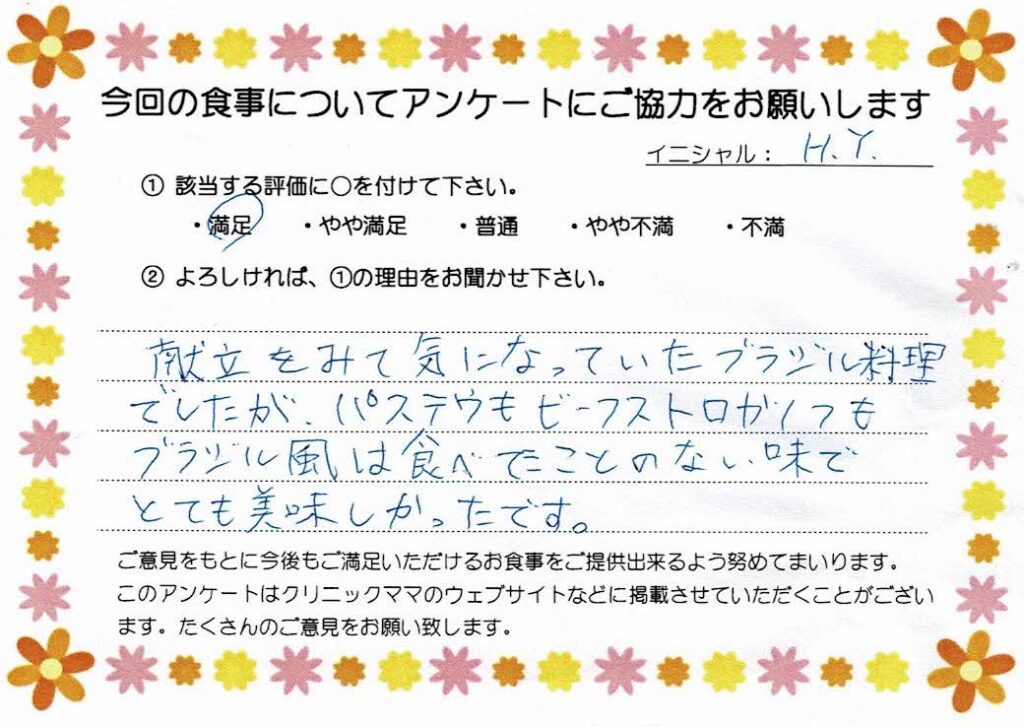 今回の食事についてアンケートにご協力をお願いします
イニシャル： H.Y.
① 該当する評価に○を付けて下さい。
・満足 ・やや満足 ・普通 ・やや不満 ・不満
② よろしければ、①の理由をお聞かせ下さい。
献立をみて気になっていたブラジル料理
でしたが、パステウもビーフストロガノフも
ブラジル風は食べてたことのない味で
とても美味しかったです。
ご意見をもとに今後もご満足いただけるお食事をご提供出来るよう努めてまいります。
このアンケートはクリニックママのウェブサイトなどに掲載させていただくことがござい
ます。たくさんのご意見をお願い致します。